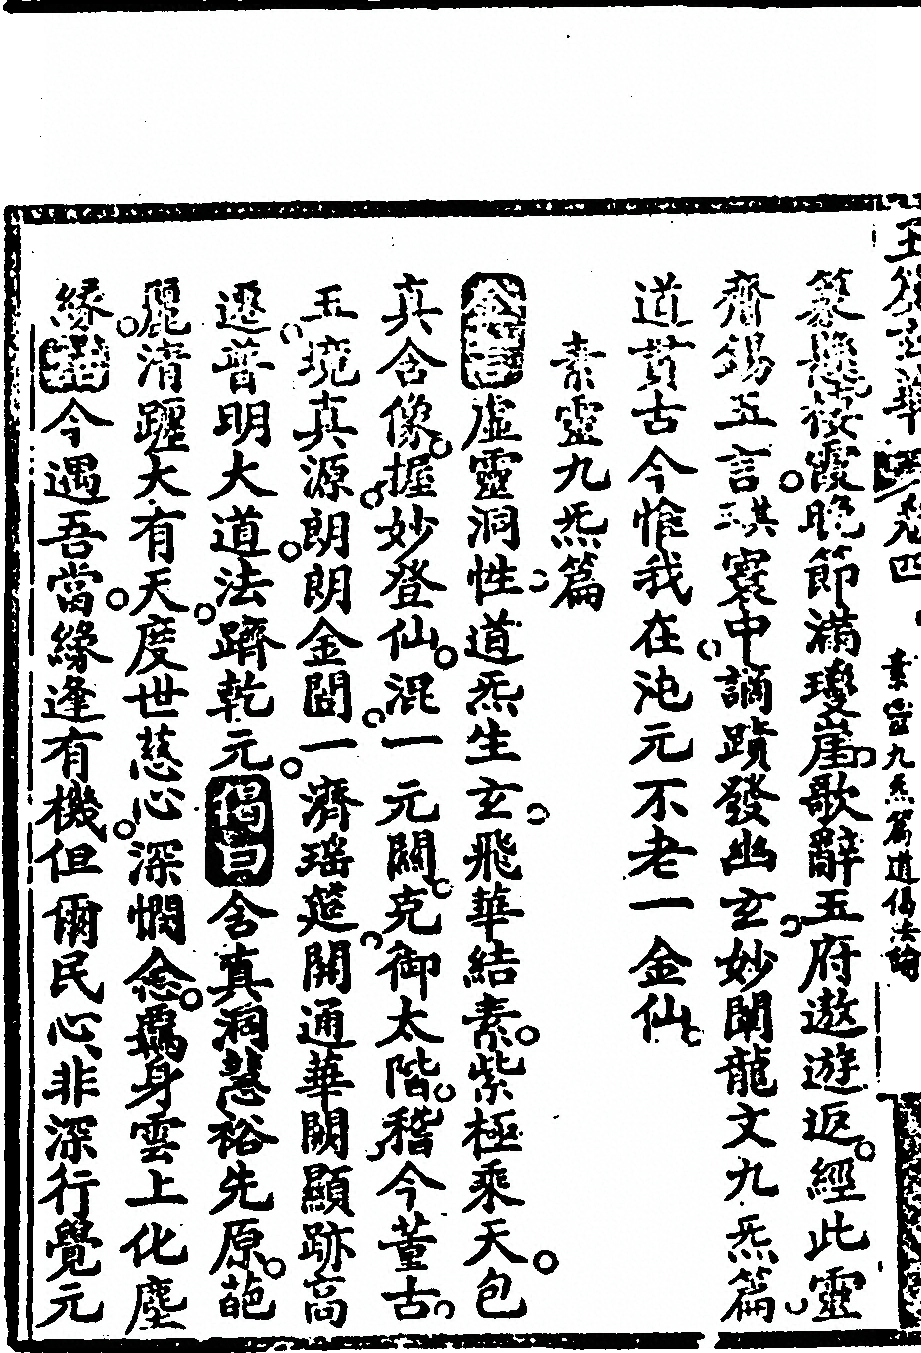 玉笈玄華 卷四 素靈九炁篇道偈法論
篆機桉霞晚節滿瓊崖歌辭五府遨遊返經此靈
齋錫五言琪寰中謫蹟發幽玄妙闡龍文九炁篇
道貫古今惟我在沌元不老一金仙
素靈九炁篇
虛靈洞性道炁生玄飛華結素紫極乘天包
真含像握妙登仙混一元關克御太階稽今董古
五境真源朗朗金閶一濟瑤筵開通華闕顯跡高
遷普明大道法躋乾元偈曰含真洞慧裕先原葩
麗清躔大有天度世慈心深憫念羈身雲上化塵
緣今遇吾當緣逢有機但爾民心非深行覺元